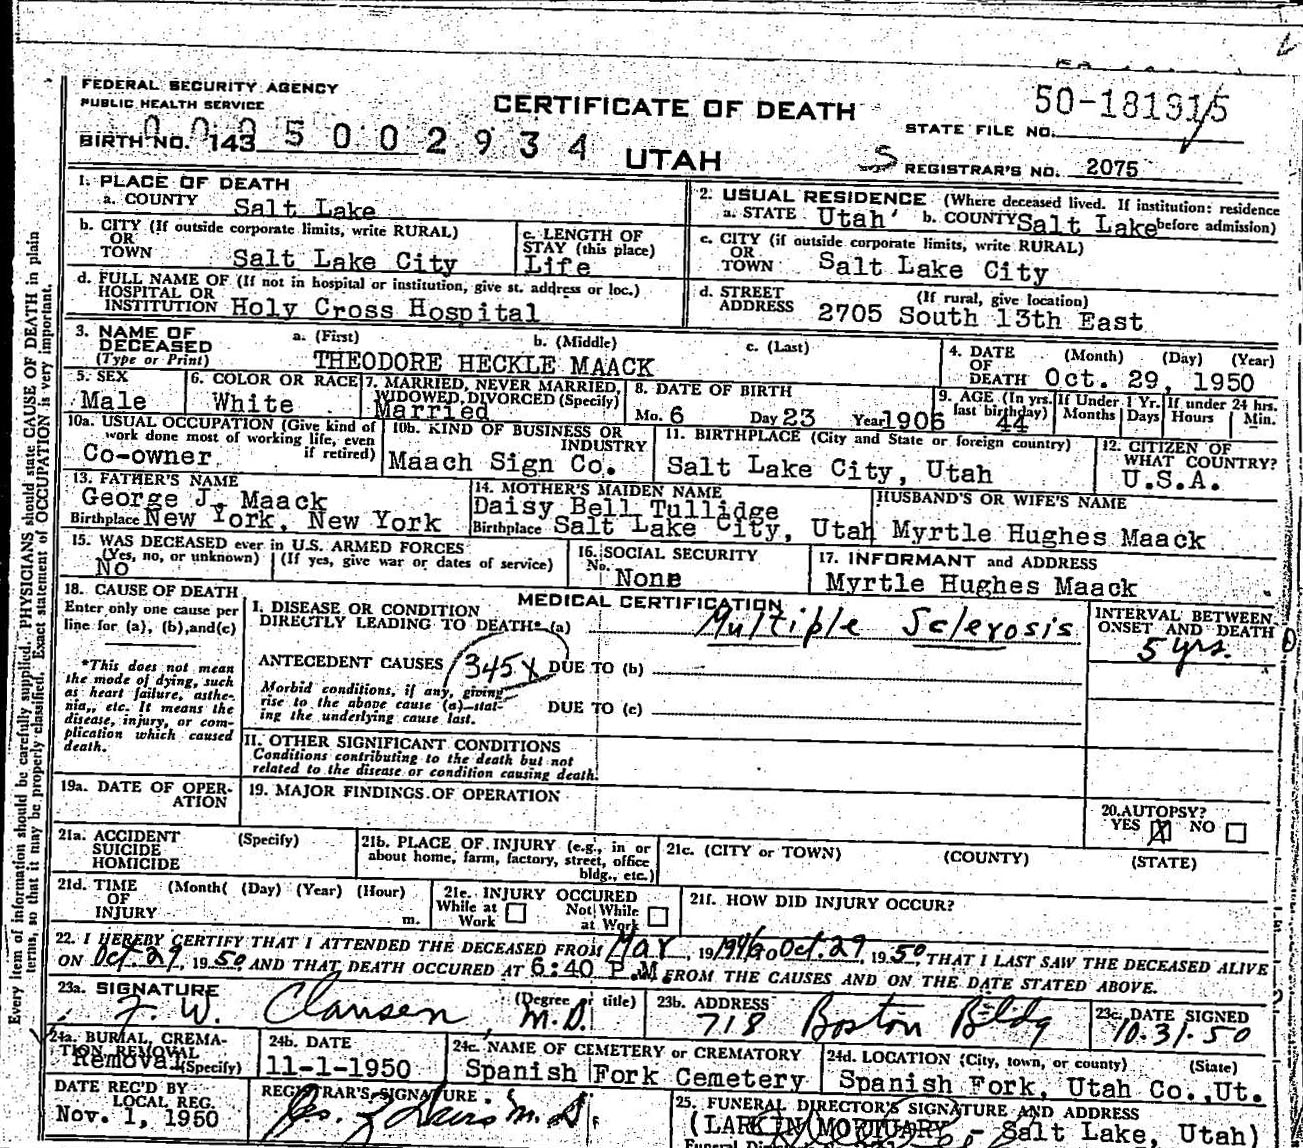 FEDERAL SECURITY AGENCY
PUBLIC HEALTH SERVICE
CERTIFICATE OF DEATH
50-181915
STATE FILE NO.
BIRTH NO. 143 0005002934
UTAH
S REGISTRAR'S NO. 2075
1. PLACE OF DEATH
a. COUNTY Salt Lake
2. USUAL RESIDENCE (Where deceased lived. If institution: residence before admission)
a. STATE Utah b. COUNTY Salt Lake
b. CITY (If outside corporate limits, write RURAL)
OR
TOWN Salt Lake City
c. LENGTH OF
STAY (this place)
Life
c. CITY (if outside corporate limits, write RURAL)
OR
TOWN Salt Lake City
d. FULL NAME OF (If not in hospital or institution, give st. address or loc.)
HOSPITAL OR
INSTITUTION Holy Cross Hospital
d. STREET (If rural, give location)
ADDRESS 2705 South 13th East
3. NAME OF
DECEASED
(Type or Print)
a. (First) b. (Middle) c. (Last)
THEODORE HECKLE MAACK
4. DATE (Month) (Day) (Year)
OF
DEATH Oct. 29, 1950
5. SEX
Male
6. COLOR OR RACE
White
7. MARRIED, NEVER MARRIED,
WIDOWED, DIVORCED (Specify)
Married
8. DATE OF BIRTH
Mo. 6 Day 23 Year 1906
9. AGE (In yrs.
last birthday)
44
If Under 1 Yr.
Months Days
If under 24 hrs.
Hours Min.
10a. USUAL OCCUPATION (Give kind of
work done most of working life, even
if retired)
Co-owner
10b. KIND OF BUSINESS OR
INDUSTRY
Maach Sign Co.
11. BIRTHPLACE (City and State or foreign country)
Salt Lake City, Utah
12. CITIZEN OF
WHAT COUNTRY?
U.S.A.
13. FATHER'S NAME
George J. Maack
Birthplace New York, New York
14. MOTHER'S MAIDEN NAME
Daisy Bell Tullidge
Birthplace Salt Lake City, Utah
HUSBAND'S OR WIFE'S NAME
Myrtle Hughes Maack
15. WAS DECEASED ever in U.S. ARMED FORCES
(Yes, no, or unknown) (If yes, give war or dates of service)
No
16. SOCIAL SECURITY
No. None
17. INFORMANT and ADDRESS
Myrtle Hughes Maack
18. CAUSE OF DEATH
Enter only one cause per
line for (a), (b), and (c)
*This does not mean
the mode of dying, such
as heart failure, asthe-
nia, etc. It means the
disease, injury, or com-
plication which caused
death.
MEDICAL CERTIFICATION
I. DISEASE OR CONDITION
DIRECTLY LEADING TO DEATH* (a) Multiple Sclerosis
INTERVAL BETWEEN
ONSET AND DEATH
5 yrs.
ANTECEDENT CAUSES 345X DUE TO (b)
Morbid conditions, if any, giving
rise to the above cause (a) stat-
ing the underlying cause last.
DUE TO (c)
II. OTHER SIGNIFICANT CONDITIONS
Conditions contributing to the death but not
related to the disease or condition causing death.
19a. DATE OF OPER-
ATION
19. MAJOR FINDINGS OF OPERATION
20. AUTOPSY?
YES X NO
21a. ACCIDENT (Specify)
SUICIDE
HOMICIDE
21b. PLACE OF INJURY (e.g., in or
about home, farm, factory, street, office
bldg., etc.)
21c. (CITY or TOWN) (COUNTY) (STATE)
21d. TIME (Month( (Day) (Year) (Hour)
OF
INJURY m.
21e. INJURY OCCURED
While at Work Not While at Work
21f. HOW DID INJURY OCCUR?
22. I HEREBY CERTIFY THAT I ATTENDED THE DECEASED FROM Mar, 19 1946 TO Oct. 29, 1950, THAT I LAST SAW THE DECEASED ALIVE
ON Oct. 29, 1950 AND THAT DEATH OCCURED AT 6:40 P.M. FROM THE CAUSES AND ON THE DATE STATED ABOVE.
23a. SIGNATURE (Degree title)
F. W. Clausen, M.D.
23b. ADDRESS
718 Boston Bldg
23c. DATE SIGNED
10.31.50
24a. BURIAL, CREMA-
TION, REMOVAL
(Specify)
Removal
24b. DATE
11-1-1950
24c. NAME OF CEMETERY or CREMATORY
Spanish Fork Cemetery
24d. LOCATION (City, town, or county) (State)
Spanish Fork, Utah Co., Ut.
DATE REC'D BY
LOCAL REG.
Nov. 1, 1950
REGISTRAR'S SIGNATURE
M.D.
25. FUNERAL DIRECTOR'S SIGNATURE AND ADDRESS
(LARKIN MORTUARY - Salt Lake, Utah)
Every item of information should be carefully supplied. PHYSICIANS should state CAUSE OF DEATH in plain
terms, so that it may be properly classified. Exact statement of OCCUPATION is very important.